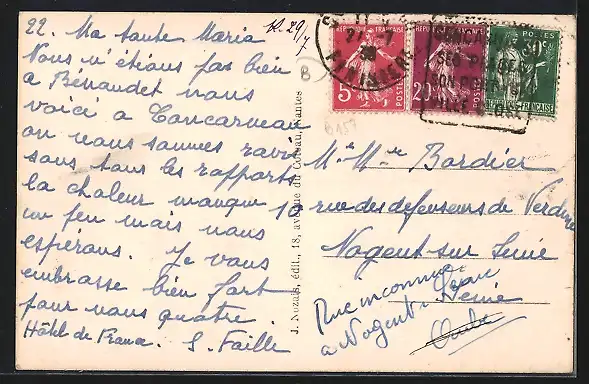 22. Ma tante Maria
R. 29/7
Nous n'étions pas bien
a Bénaudet nous
voici à Concarneau
ou nous sommes ravis
sous tous les rapports
la chaleur manque
un peu mais nous
espérons. Je vous
embrasse bien fort
pour nous quatre.
Hôtel de France. S. Faille
J. Nozais, édit., 18, avenue du Coteau, Nantes
B
B157
5
POSTES
20
POSTES
FRANÇAISE
FINISTERE
Mr Mme Bordier
10 rue des défenseurs de Verdun
Nogent sur Seine
Seine
Aube
Rue inconnue
a Nogent s/